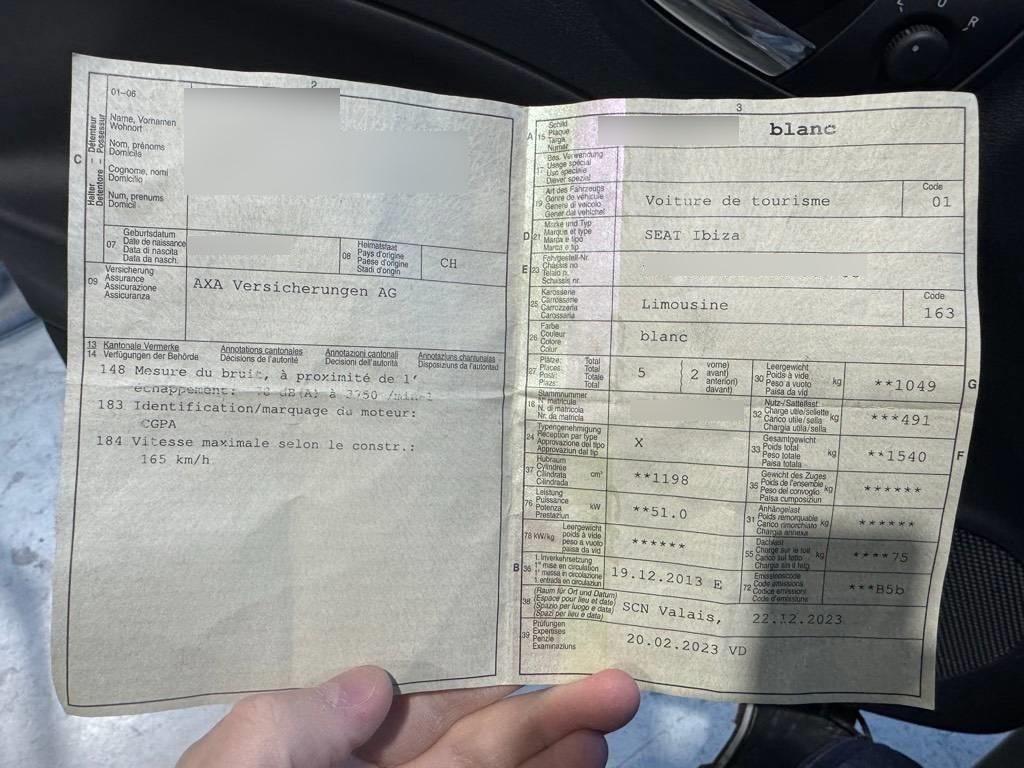 2
01-06
C
Halter Détenteur
Detentore Possessur
Name, Vornamen
Wohnort
Nom, prénoms
Domicile
Cognome, nomi
Domicilio
Num, prenums
Domicil
07
Geburtsdatum
Date de naissance
Data di nascita
Data da nasch.
08
Heimatstaat
Pays d'origine
Paese d'origine
Stadi d'origin
CH
09
Versicherung
Assurance
Assicurazione
Assicuranza
AXA Versicherungen AG
13 Kantonale Vermerke Annotations cantonales Annotazioni cantonali Annotaziuns chantunalas
14 Verfügungen der Behörde Décisions de l'autorité Decisioni dell'autorità Disposiziuns da l'autoritad
148 Mesure du bruit, à proximité de l'
échappement: dB(A) à 3750 /min
183 Identification/marquage du moteur:
CGPA
184 Vitesse maximale selon le constr.:
165 km/h
3
A 15
Schild
Plaque
Targa
Numer
blanc
17
Bes. Verwendung
Usage spécial
Uso speciale
Diever spezial
19
Art des Fahrzeugs
Genre de véhicule
Genere di veicolo
Gener dal vehichel
Voiture de tourisme
Code
01
D 21
Marke und Typ
Marque et type
Marca e tipo
Marca e tip
SEAT Ibiza
E 23
Fahrgestell-Nr.
Châssis no
Telaio n.
Schassis nr.
25
Karosserie
Carrosserie
Carrozzeria
Carossaria
Limousine
Code
163
26
Farbe
Couleur
Colore
Colur
blanc
27
Plätze: Total
Places: Total
Posti: Totale
Plazs: Total
5
2
vorne)
avant)
anteriori)
davant)
30
Leergewicht
Poids à vide
Peso a vuoto
Paisa da vid
kg
**1049
G
18
Stammnummer
N° matricule
N. di matricola
Nr. da matricla
32
Nutz-/Sattellast
Charge utile/sellette
Carico utile/sella
Chargia utila/sella
kg
***491
24
Typengenehmigung
Réception par type
Approvazione del tipo
Approvaziun dal tip
X
33
Gesamtgewicht
Poids total
Peso totale
Paisa totala
kg
**1540
F
37
Hubraum
Cylindrée
Cilindrata
Cilindrada
cm³
**1198
35
Gewicht des Zuges
Poids de l'ensemble
Peso del convoglio
Paisa cumposiziun
kg
******
76
Leistung
Puissance
Potenza
Prestaziun
kW
**51.0
31
Anhängelast
Poids remorquable
Carico rimorchiato
Chargia annexa
kg
******
78 kW/kg
Leergewicht
poids à vide
peso a vuoto
paisa da vid
******
55
Dachlast
Charge sur le toit
Carico sul tetto
Chargia sin il tetg
kg
****75
B 36
1. Inverkehrsetzung
1re mise en circulation
1a messa in circolazione
1. entrada en circulaziun
19.12.2013 E
72
Emissionscode
Code émissions
Codice emissioni
Code d'emissiuns
***B5b
38
(Raum für Ort und Datum)
(Espace pour lieu et date)
(Spazio per luogo e data)
(Spazi per lieu e data)
SCN Valais, 22.12.2023
39
Prüfungen
Expertises
Perizie
Examinaziuns
20.02.2023 VD
R